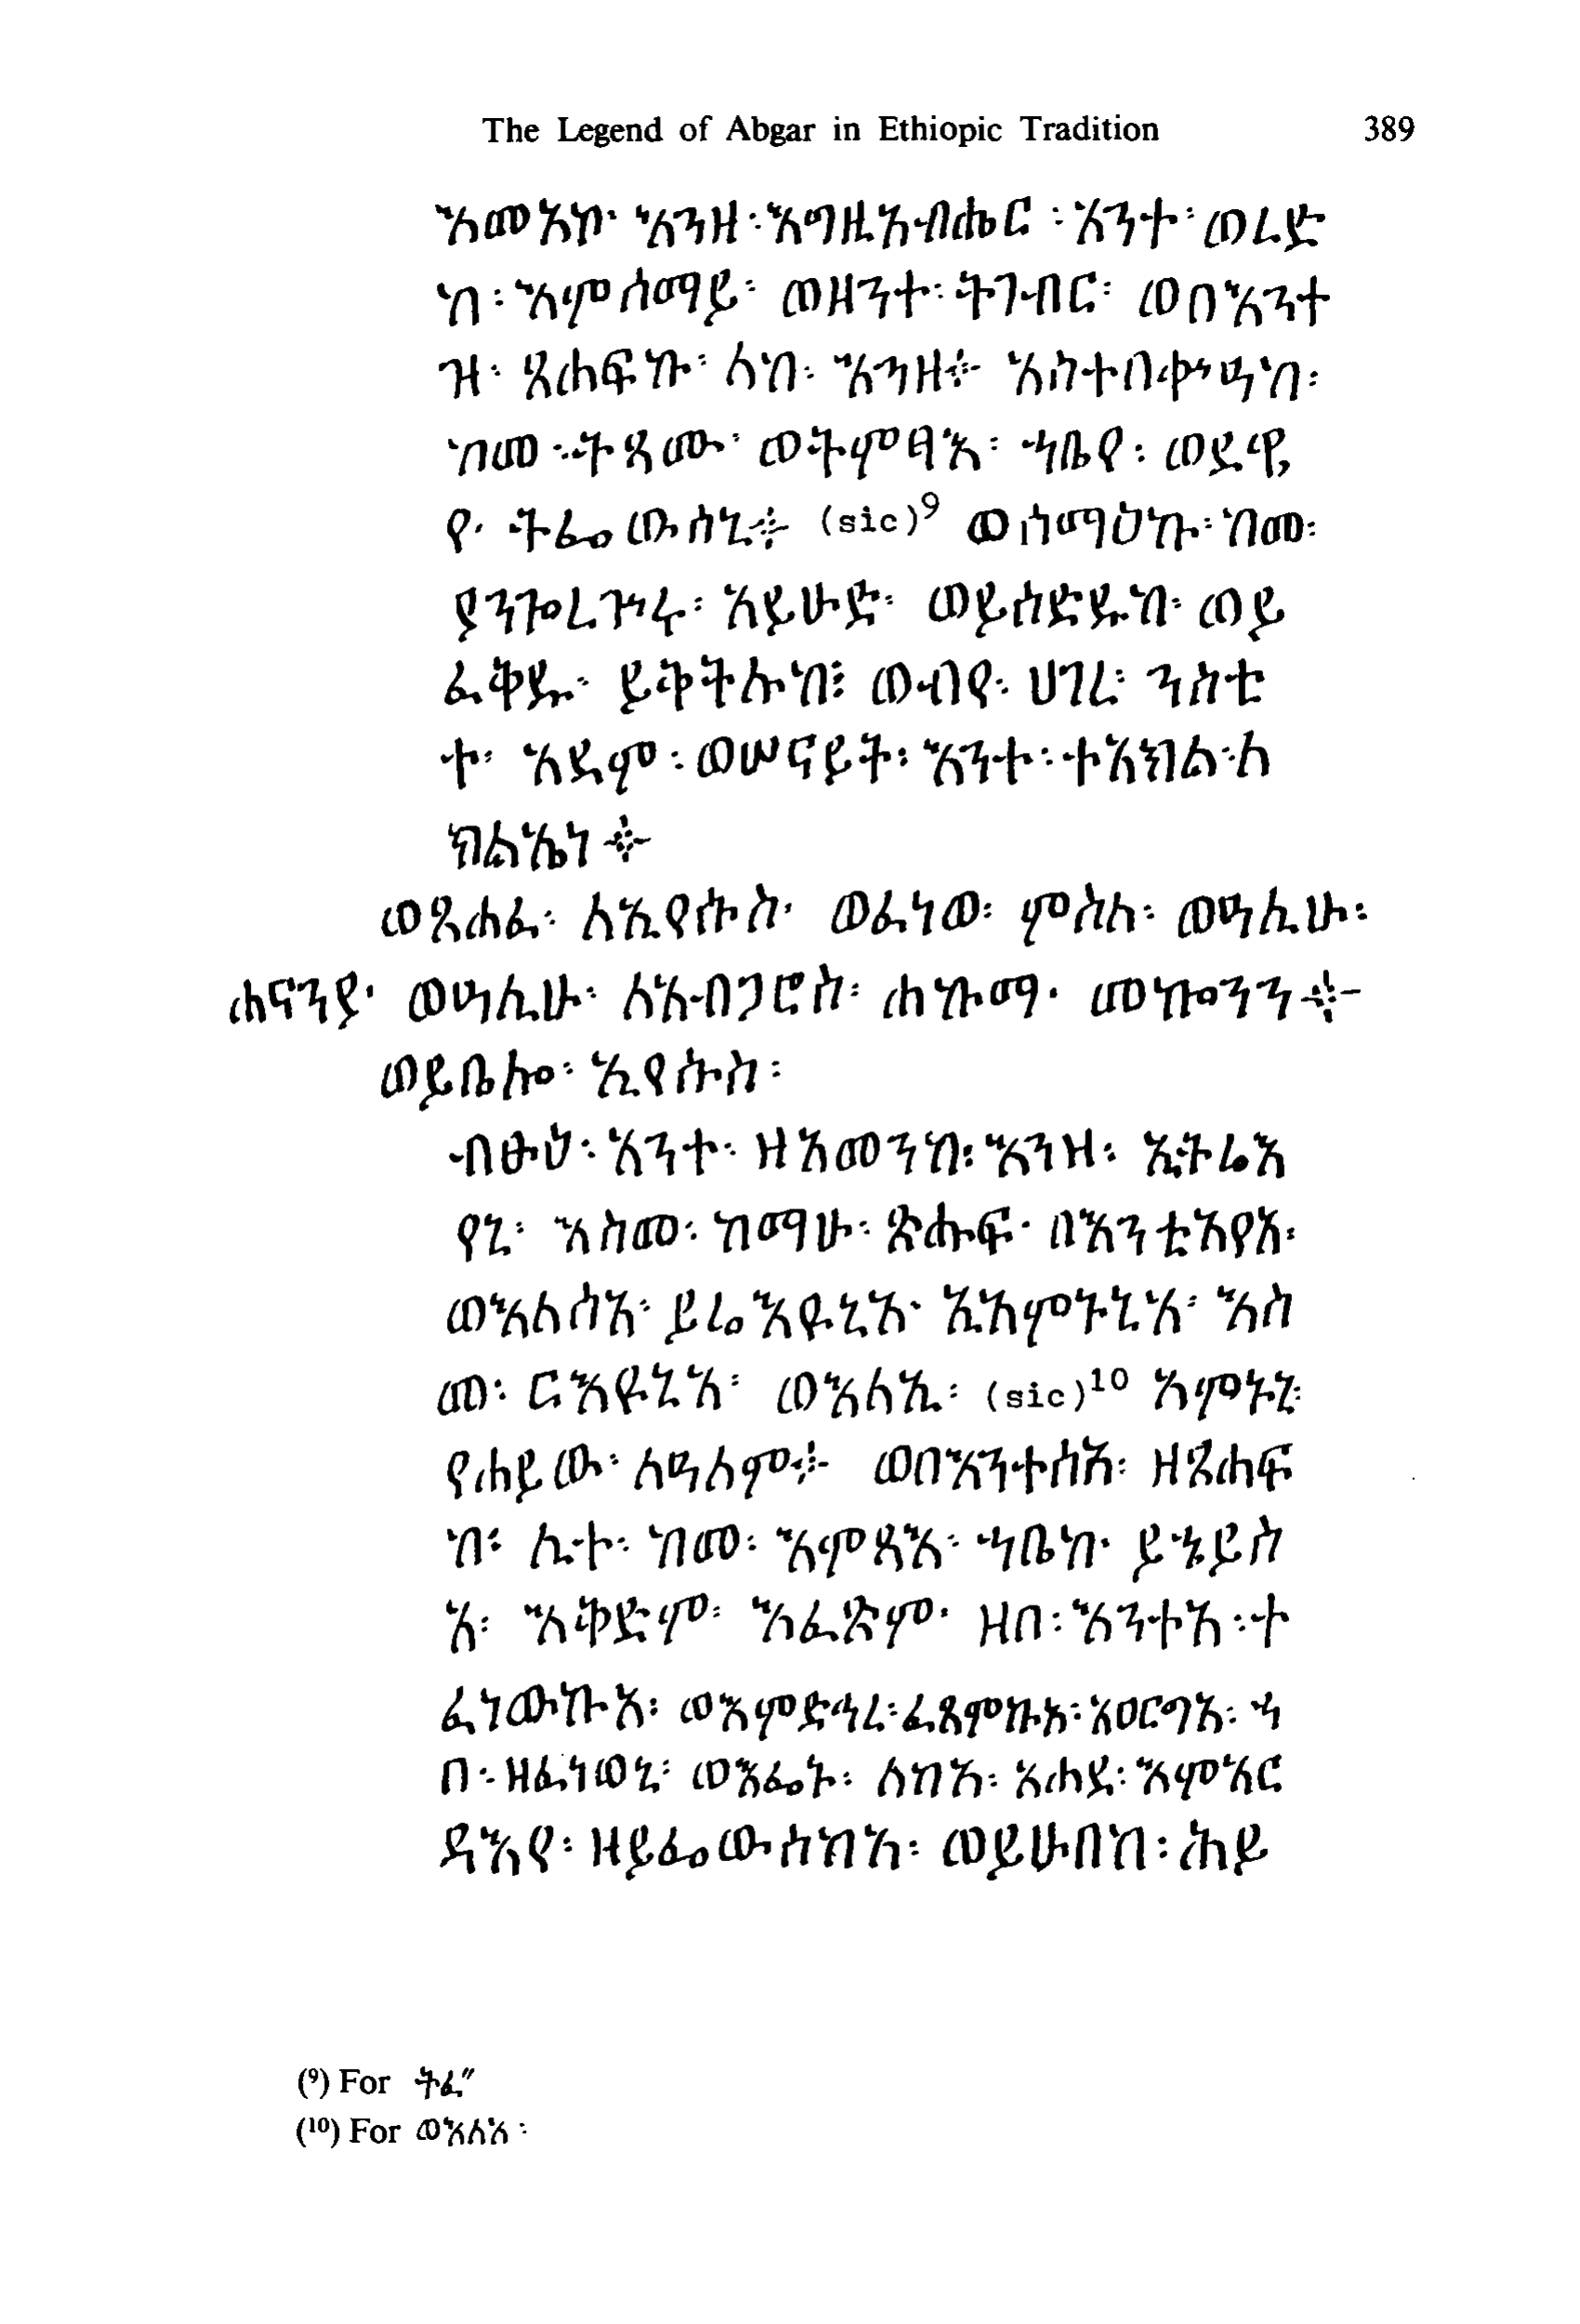 The Legend of Abgar in Ethiopic Tradition 389
እመአኮ፡ እንዘ፡እግዚአብሔር፡አንተ፡ወረድ
ከ፡እምሰማይ፡ ወዘንተ፡ትገብር፡ ወበእንተ
ዝ፡ ጸሐፍኩ፡ ለከ፡ እንዘ። አስተበቍዓከ፡
ከመ፡ትጻሙ፡ ወትምፃእ፡ ኀቤየ፡ ወደዌ
የ፡ ትፌውሰኒ። (sic)9 ወሰማዕኩ፡ከመ፡
ያንጐረጕሩ፡ አይሁድ፡ ወይሰድዱከ፡ ወይ
ፈቅዱ፡ ይቅትሉከ፤ ወብየ፡ ሀገረ፡ ንስቲ
ተ፡ አደም፡ወሠናይት፡እንተ፡ተአክል፡ለ
ክልኤነ።
ወጸሐፈ፡ ለኢየሱስ፡ ወፈነወ፡ ምስለ፡ ወዓሊሁ፡
ሐናንያ፡ ወዓሊሁ፡ ለአብጋሮስ፡ ሐኩማ፡ መኰንን።
ወይቤሎ፡ ኢየሱስ፡
ብፁዕ፡አንተ፡ ዘአመንከ፡እንዝ፡ ኢትሬእ
የኒ፡ እስመ፡ ከማሁ፡ ጽሑፍ፡ በእንቲአየአ፡
ወእለሰአ፡ ይሬእዩኒአ፡ ኢአምኑኒአ፡ እስ
መ፡ ርእዩኒአ፡ ወእለኢ፡ (sic)10 አምኑኒ፡
የሐይው፡ ለዓለም። ወበእንተሰአ፡ ዘጸሐፍ
ከ፡ ሊተ፡ ከመ፡ እምጻእ፡ ኀቤከ፡ ይኄይስ
አ፡ እቅድም፡ እፈጽም፡ ዘበ፡እንተአ፡ተ
ፈነውኩአ፡ ወእምድኅረ፡ፈጸምኩአ፡አዐርግአ፡ ኀ
በ፡ዘፈነወኒ፡ ወእፌኑ፡ ለከአ፡ አሐደ፡እምአር
ዳእየ፡ ዘይፌውሰከአ፡ ወይሁበከ፡ሕይ
(9) For ትፈ″
(10) For ወእለአ፡